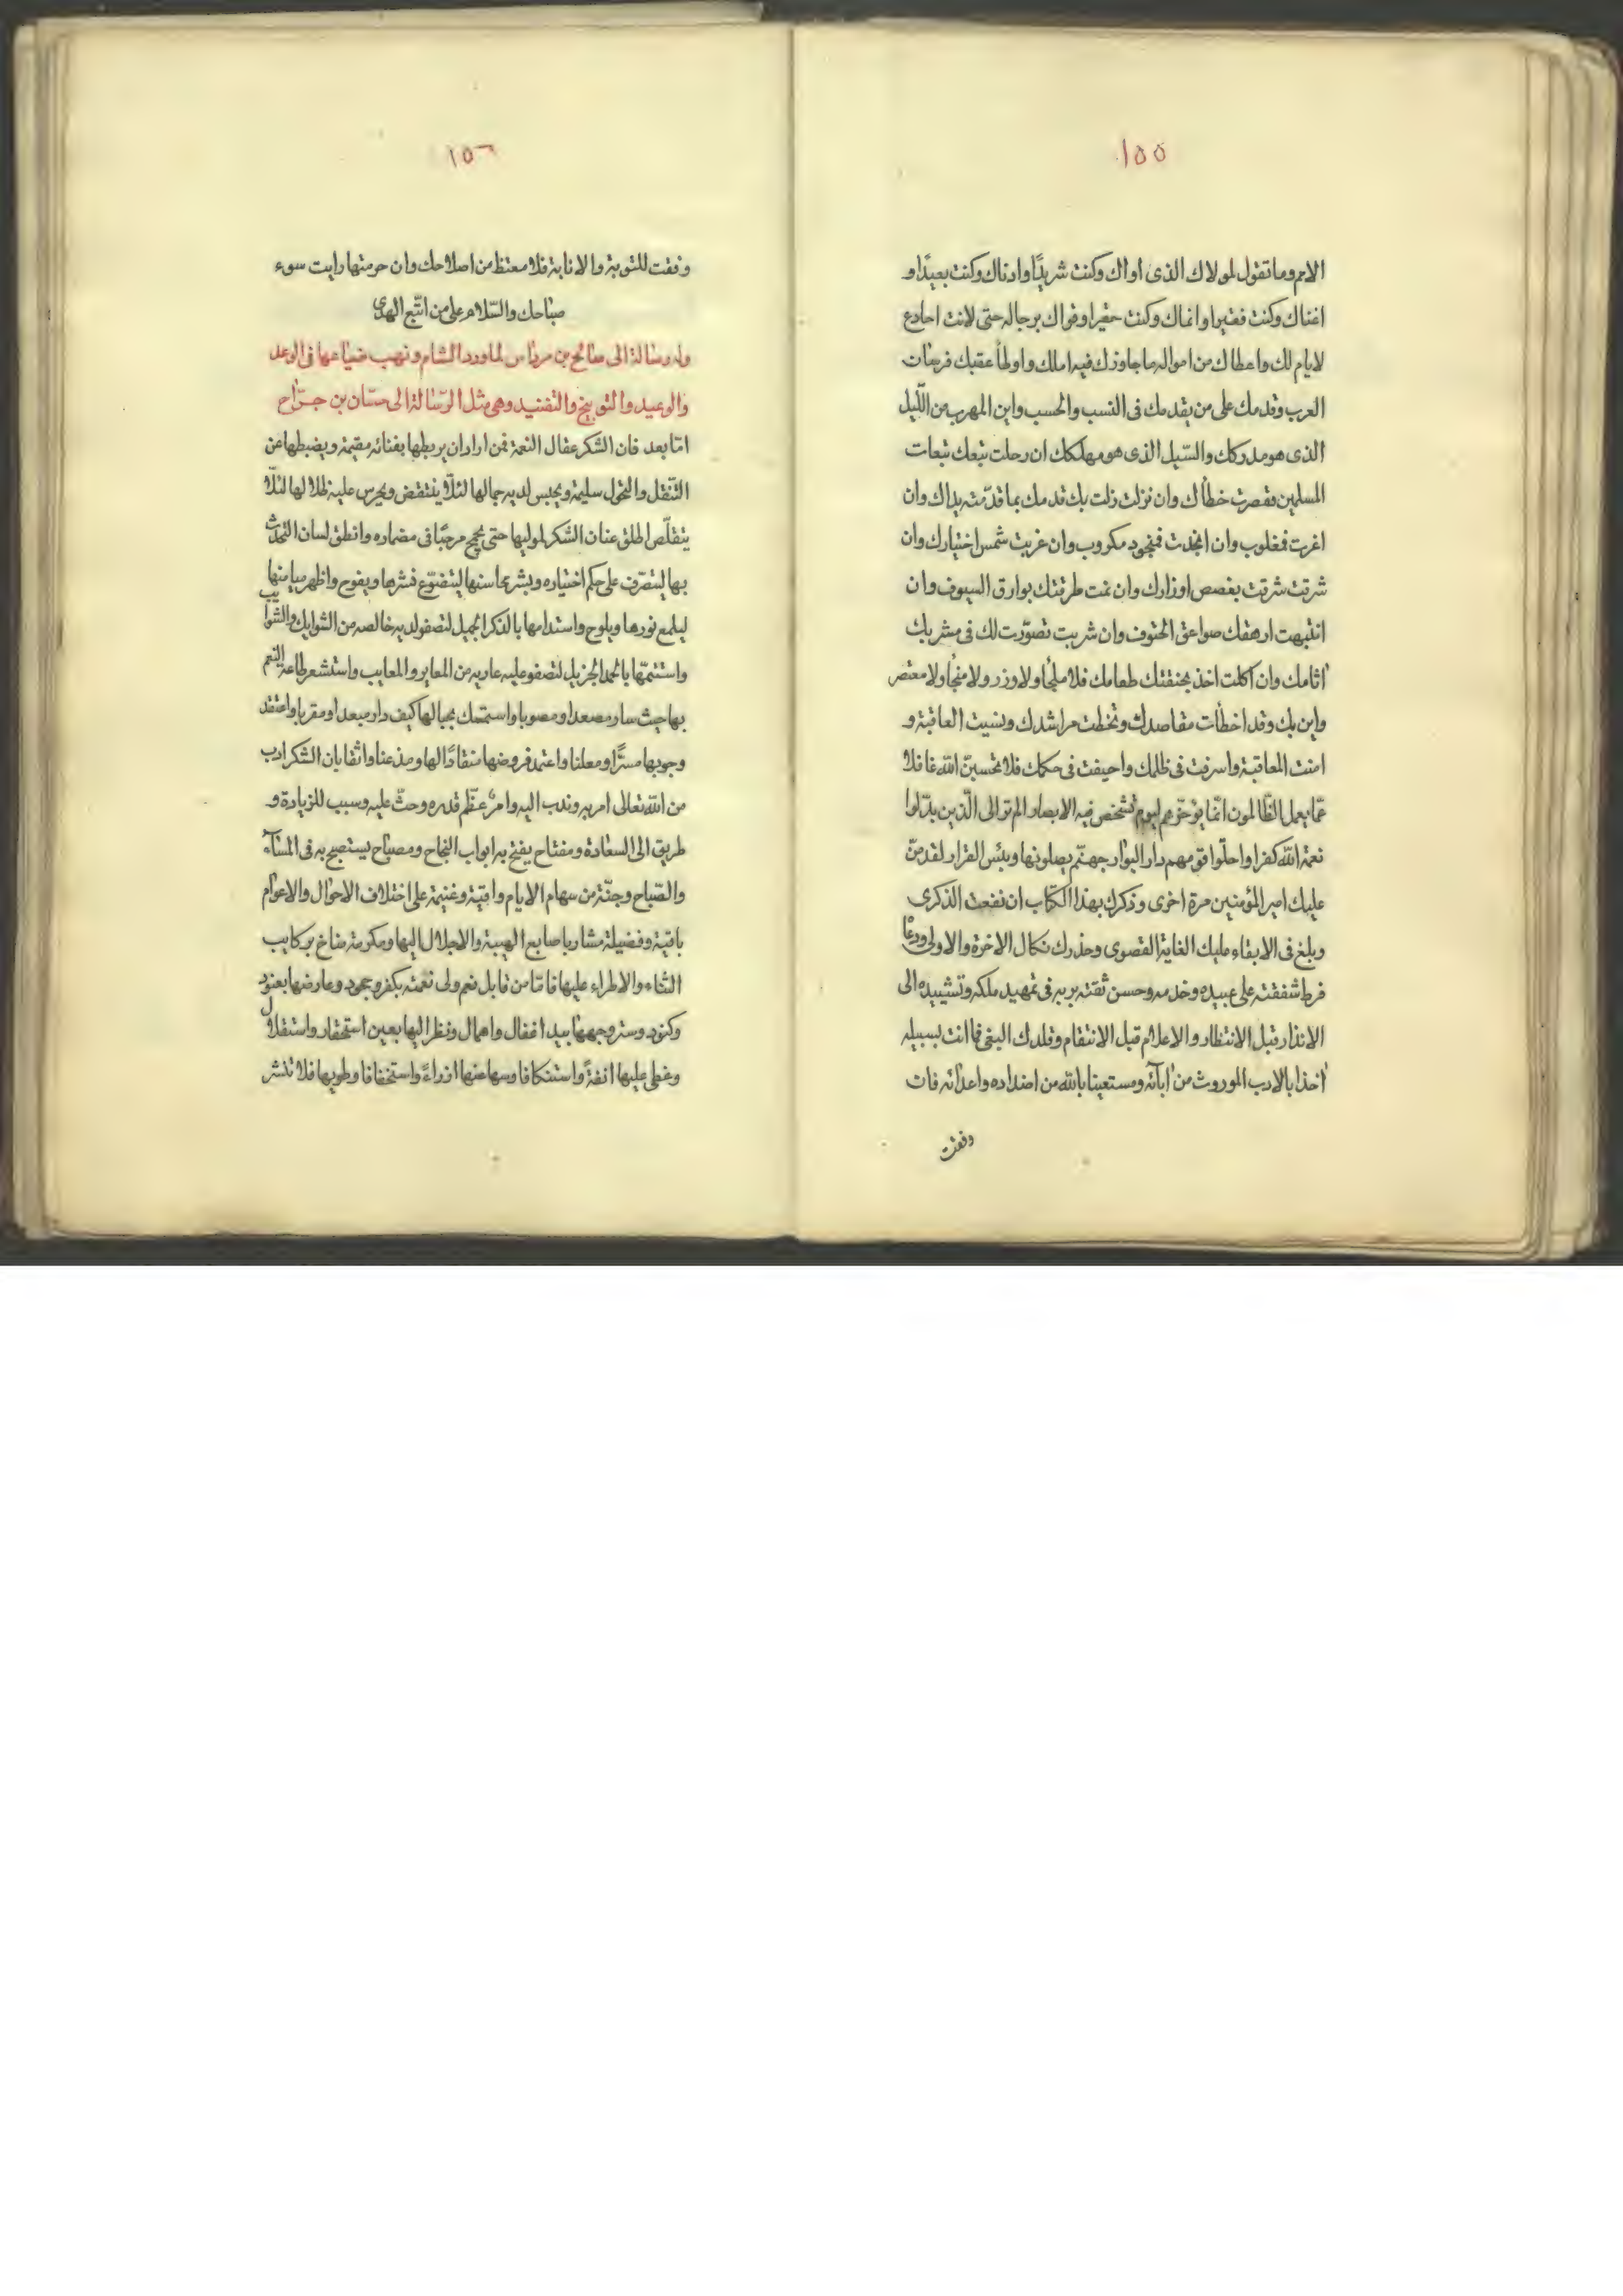 ١٥٥
الامم وما تقول لمولاك الذى اواك وكنت شريدًا وادناك وكنت بعيدًا و
اغناك وكنت فقيرا وانماك وكنت حقيرا وقواك برجاله حتى لانت اخادع
لايام لك واعطاك من امواله ما جاوزك فيه املك واوطأ عقبك فرسات
العرب وقدمك على من يقدمك فى النسب والحسب واين المهرب من اللّيل
الذى هو مدركك والسّيل الذى هو مهلكك ان رحلت تبعك تبعات
المسلمين فقصرت خطأك وان نزلت زلت بك قدمك بما قدّمته يداك وان
اغرت فمغلوب وان انجدت فمنجود مكروب وان غربت شمس اختيارك وان
شرقت شرقت بغصص اوزارك وان نمت طرقتك بوارق السيوف وان
انتبهت ارهقك صواعق الحتوف وان شربت تصوّرت لك فى مشربك
اثامك وان اكلت اخذ بمخنقتك طعامك فلا ملجأ ولا وزر ولا منجأ ولا معتصر
واين بك وقد اخطأت مقاصدك وتخطت مراشدك ونسيت العاقبة و
امنت المعاقبة واسرفت فى ظلمك واحيفت فى حكمك فلا تحسبنّ اللّه غافلا
عمّا يعمل الظّالمون انّما يؤخّرهم ليوم تشخص فيه الابصار الم تر الى الّذين بدّلوا
نعمة اللّه كفرا واحلّوا قومهم دار البوار جهنّم يصلونها وبئس القرار لقد منّ
عليك امير المؤمنين مرة اخرى وذكرك بهذا الكتاب ان نفعت الذكرى
وبلغ فى الابقاء عليك الغاية القصوى وحذرك نكال الاخرة والاولى ودعا
فرط شفقته على عبيده وخدمه وحسن ثقته بربه فى تمهيد ملكه وتشييده الى
الانذار قبل الانتظار والاعلام قبل الانتقام وقلدك البغى فما انت بسبيله
اخذا بالادب الموروث من آبائه ومستعينا باللّه من اضداده واعدائه فان
وفقت
١٥٦
وفقت للتوبة والانابة فلا معتظ من اصلاحك وان حرمتها رايت سوء
صباحك والسّلام على من اتّبع الهدى
وله رسالة الى صالح بن مرداس لما ورد الشام ونهب ضياعها فى الوعد
والوعيد والتوبيخ والتفنيد وهى مثل الرّسالة الى حسّان بن جرّاح
امّا بعد فان الشكر عقال النعمة فمن اراد ان يربطها بفنائه مقيمة ويضبطها عن
التّنقل والتحول سليمة ويحبس لديه جمالها لئلّا ينتقض ويحرس عليه ظلالها لئلّا
يتقلّص اطلق عنان الشكر لموليها حتى يجمح مرحبًا فى مضماره وانطق لسان التحدّث
بها ليتصرّف على حكم اختياره وبشر بمحاسنها ليتضوّع نشرها ويفوح واظهر ميامنها
ليلمع نورها ويلوح واستدامها بالذكر الجميل لتصفو لديه خالصه من الشوايك والشوايب
واستتمّها بالحمد الجزيل لتصفو عليه عاريه من المعاير والمعايب واستشعر طاعة النعم
بها حيث سار مصعدا ومصوبا واستمسك بحبالها كيف دار مبعدا ومقربا واعتقد
وجوبها مسرًّا ومعلنا واعتمد فروضها منقادًا لها ومذعنا واثقا بان الشكر ادب
من اللّه تعالى امر به وندب اليه وامرٌ عظّم قدره وحثّ عليه وسبب للزيادة و
طريق الى السعادة ومفتاح يفتح به ابواب النجاح ومصباح يستصبح به فى المساء
والصّباح وجنّة من سهام الايام واقية وغنيمة على اختلاف الاحوال والاعوام
باقية وفضيلة مشار باصابع الهيبة والاجلال اليها ومكرمة مناخ بركايب
الثناء والاطراء عليها فاما من قابل نعم ولى نعمته بكفر وجحود وعارضها بعنود
وكنود وستر وجهها بيد اغفال واهمال ونظر اليها بعين استحقار واستقلال
وغطى عليها انفةً واستنكافا وسها عنها ازراءً واستخفافا وطويها فلا تنشر